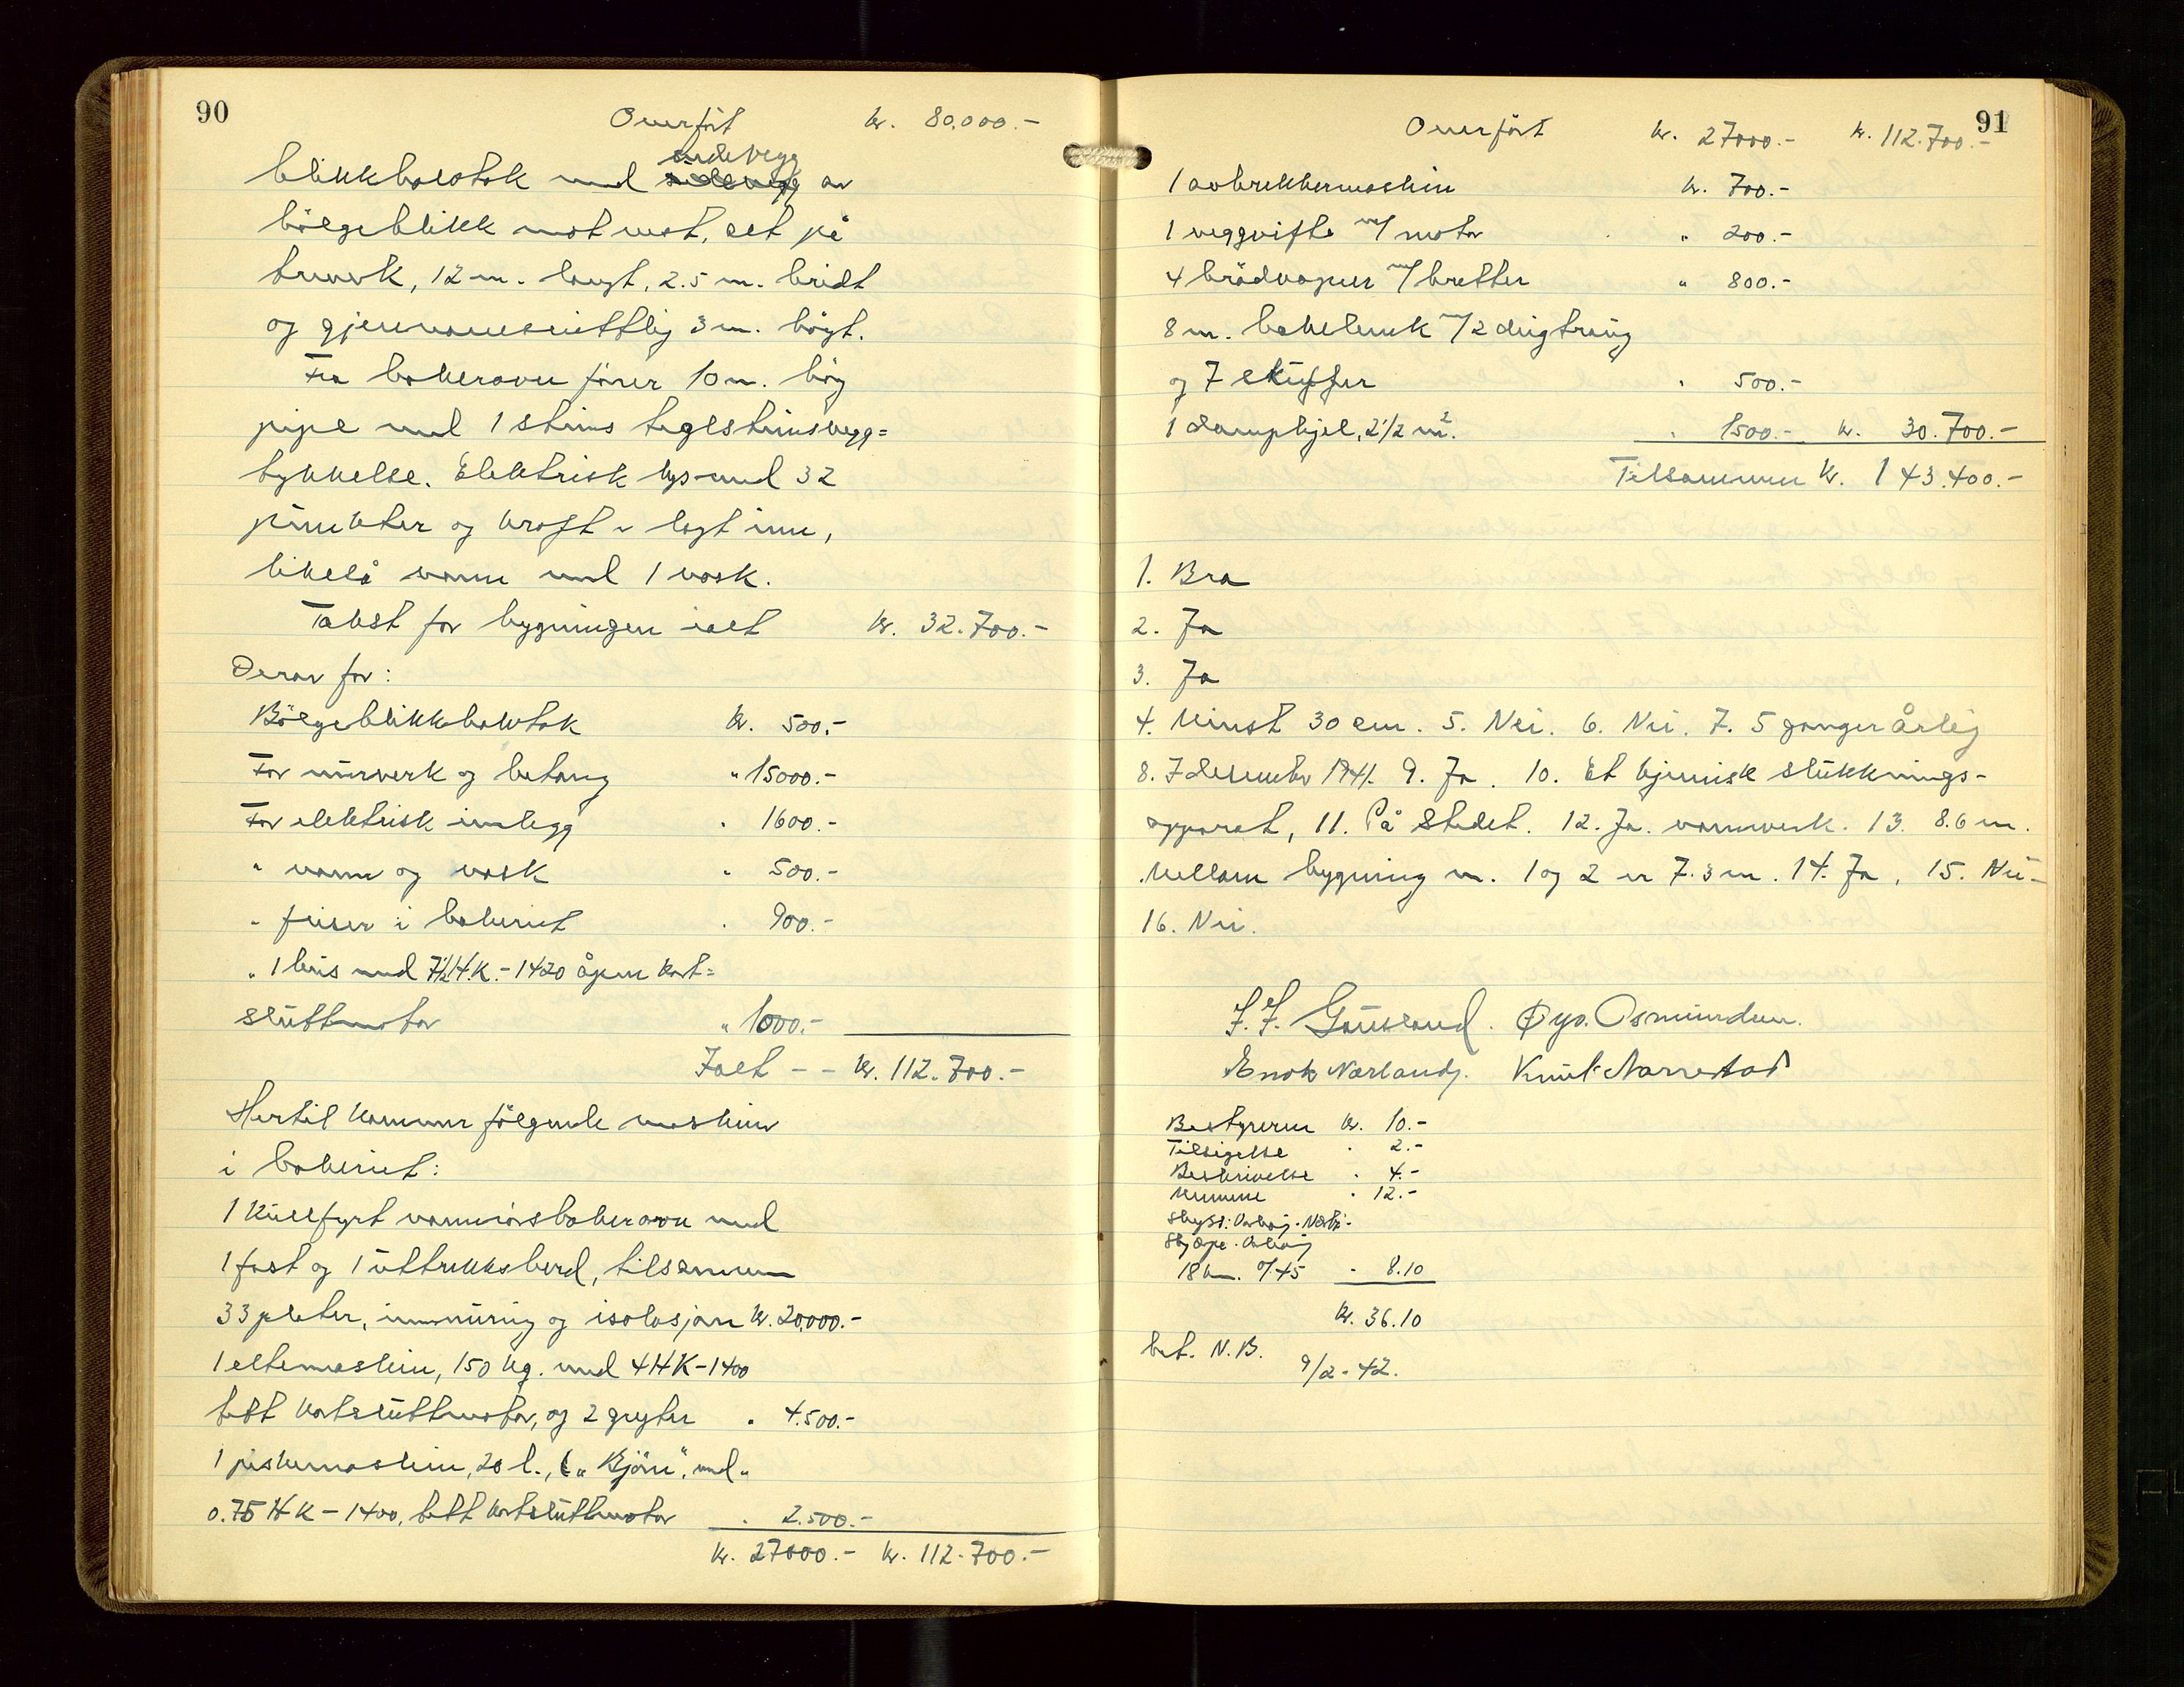 90
Overført kr. 80.000.-
endevegg
blikkhalvtak med sidevegg av
bölgeblikk mot vest, alt på
treverk, 12 m. langt, 2.5 m. bredt
og gjennomsnittlig 3 m. högt.
Fra bakerovn förer 10 m. hög
pipe med 1 steins teglsteinsvegg=
tykkelse. Elektrisk lys med 32
punkter og kraft er lagt inn,
likeså vann med 1 vask.
Takst for bygningen ialt kr. 32.700.-
Derav for:
Bölgeblikkhalvtak kr. 500.-
For murverk og betong " 15000.-
For elektrisk innlegg " 1600.-
" vann og vask " 500.-
" fliser i bakeriet " 900.-
" 1 heis med 7½ H.K.-1420 åpen kort=
sluttmotor " 1000.-
Ialt - - kr. 112.700.-
Hertil kommer fölgende maskiner
i bakeriet:
1 kullfyrt vannrörsbakerovn med
1 fast og 1 uttrekksherd, tilsammen
33 plater, innmuring og isolasjon kr. 20,000.-
1 eltemaskin, 150 kg. med 4 HK-1400
tett kortsluttmotor, og 2 gryter " 4.500.-
1 piskemaskin, 20 l., "Björn", med
0.75 HK-1400, tett kortsluttmotor " 2.500.-
kr. 27000.- kr. 112.700.-
91
Overført kr. 27000.- kr. 112.700.-
1 avbrekkermaskin kr. 700.-
1 veggvifte m/ motor " 200.-
4 brödvogner m/ bretter " 800.-
8 m. bakebenk m/ 2 deigtraug
og 7 skuffer " 500.-
1 dampkjel, 2 1/2 m². " 1500.- kr. 30.700.-
Tilsammen kr. 143.400.-
1. Bra
2. Ja
3. Ja
4. Minst 30 cm. 5. Nei. 6. Nei. 7. 5 ganger årlig
8. 7 desember 1941. 9. Ja. 10. Et kjemisk slukknings-
apparat, 11. På stedet. 12. Ja. vannverk. 13. 8.6 m.
Mellom bygning nr. 1 og 2 er 7.3 m. 14. Ja, 15. Nei-
16. Nei.
J. J. Gausland. Øyv. Osmundsen.
Enok Nærland. Knut Narrestad
Bestyreren kr. 10.-
Tilsigelse " 2.-
Beskrivelse " 4.-
Mennene " 12.-
Skyss: Varhaug-Nærbö-
Varhaug
18 km. à 45 " 8.10
kr. 36.10
bet. N.B.
9/2-42.